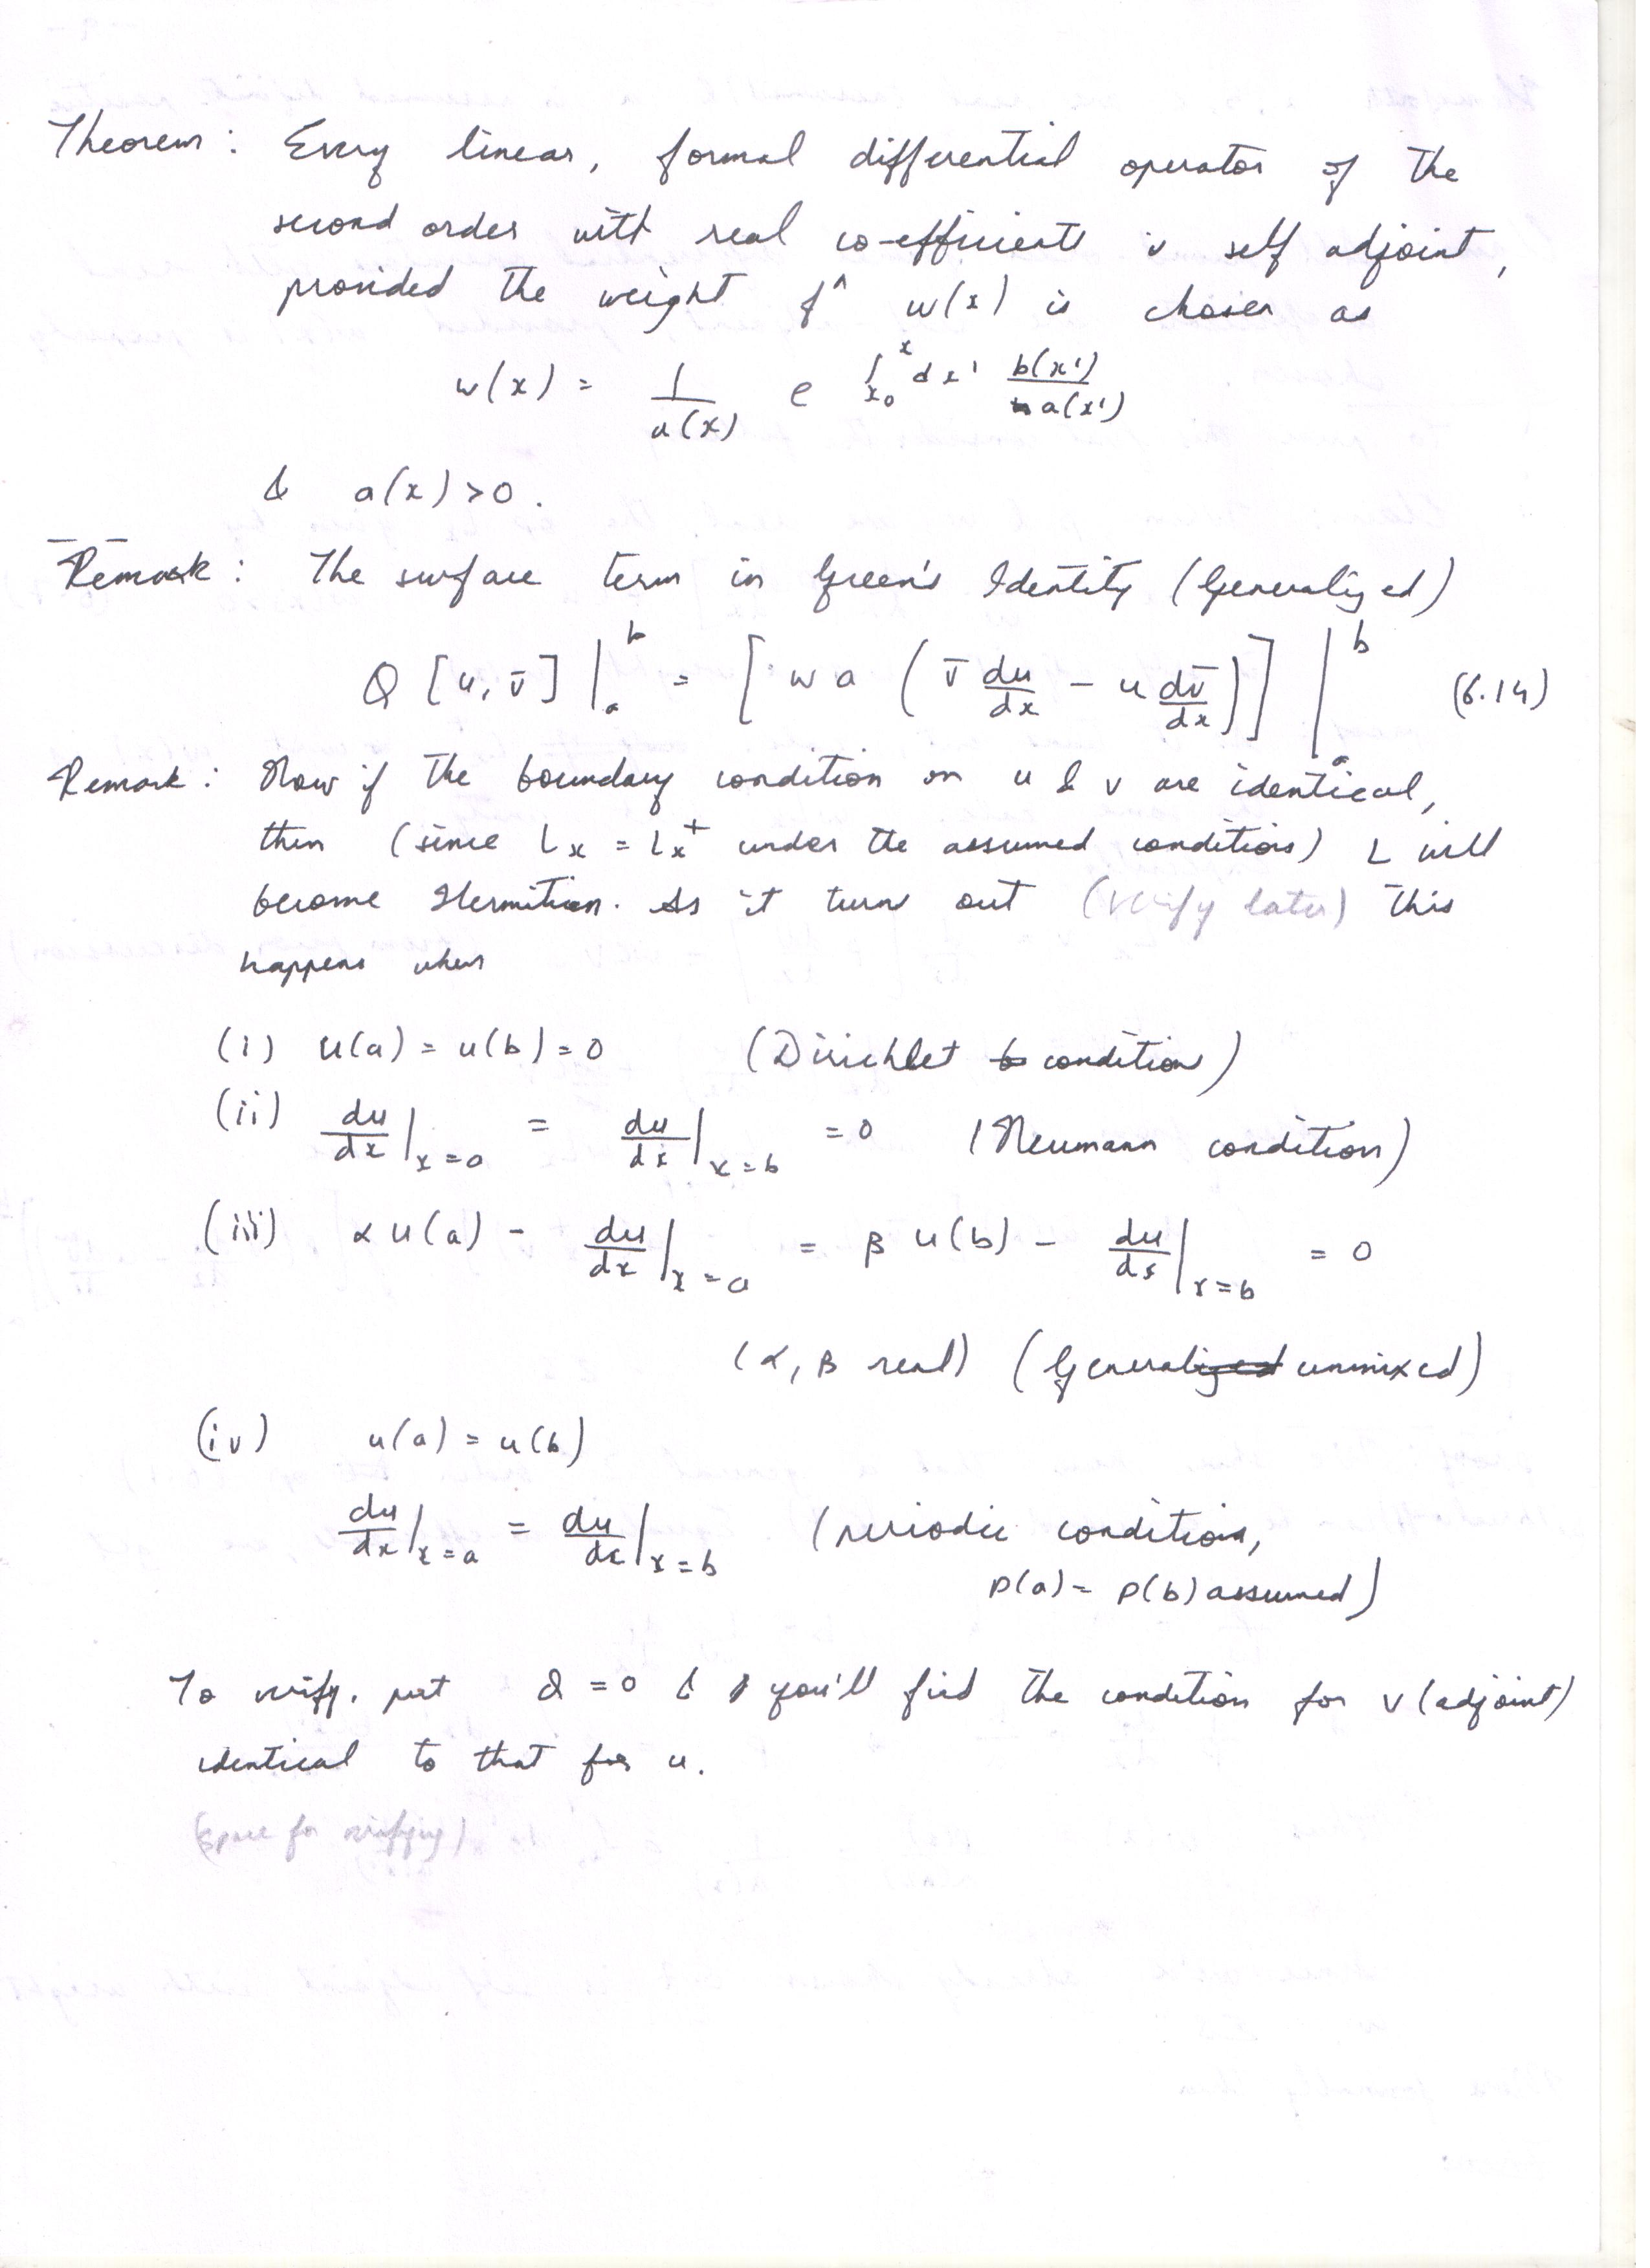 Theorem : Every linear, formal differential operator of the
second order with real co-efficients is self adjoint,
provided the weight fⁿ w(x) is chosen as
w(x) = 1/a(x) e ∫_{x₀}^{x} dx' b(x')/a(x')
& a(x) > 0.
Remark : The surface term in Green's Identity (Generalized)
Q [u, v̄] |_a^b = [ w a ( v̄ du/dx - u dv̄/dx ) ] |_a^b (6.14)
Remark : Now if the boundary condition on u & v are identical,
then (since Lx = Lx⁺ under the assumed conditions) L will
become Hermitian. As it turns out (verify later) this
happens when
(i) u(a) = u(b) = 0 (Dirichlet condition)
(ii) du/dx |_{x=a} = du/dx |_{x=b} = 0 (Neumann condition)
(iii) α u(a) - du/dx |_{x=a} = β u(b) - du/dx |_{x=b} = 0
(α, β real) (General unmixed)
(iv) u(a) = u(b)
du/dx |_{x=a} = du/dx |_{x=b} (periodic conditions,
p(a) = p(b) assumed)
To verify, put Q = 0 & you'll find the condition for v (adjoint)
identical to that for u.
(space for verifying)